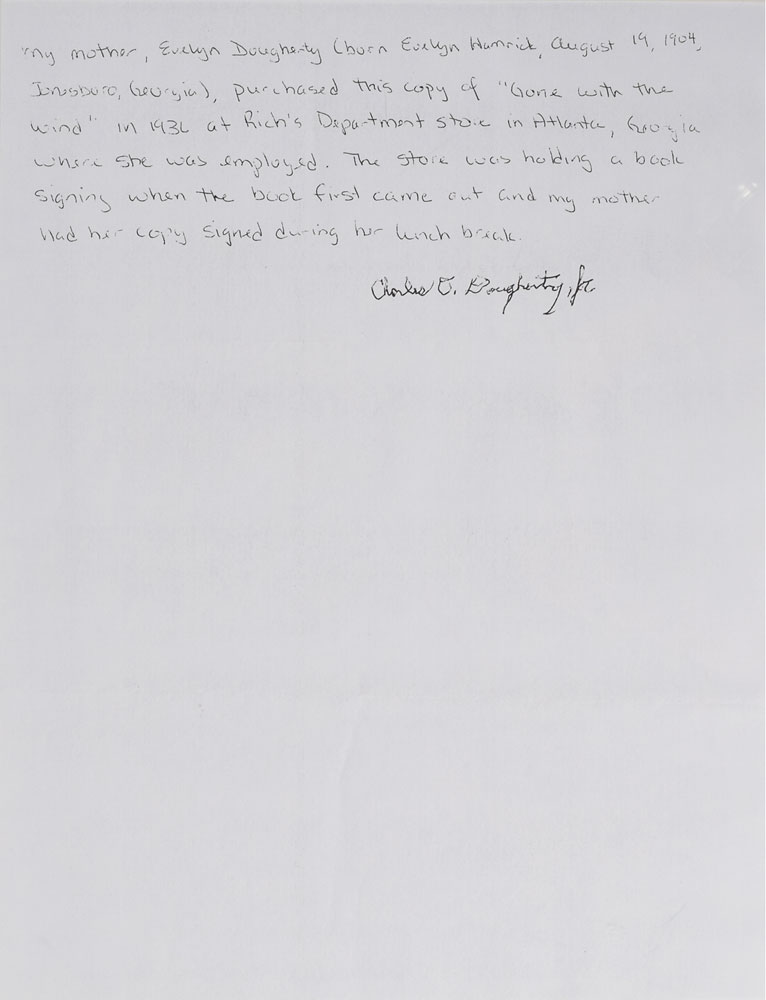 "My mother, Evelyn Dougherty (born Evelyn Hamrick, August 19, 1904,
Jonesboro, Georgia), purchased this copy of "Gone with the
Wind" in 1936 at Rich's Department Store in Atlanta, Georgia
where she was employed. The store was holding a book
signing when the book first came out and my mother
had her copy signed during her lunch break.
Charles O. Dougherty, Jr.